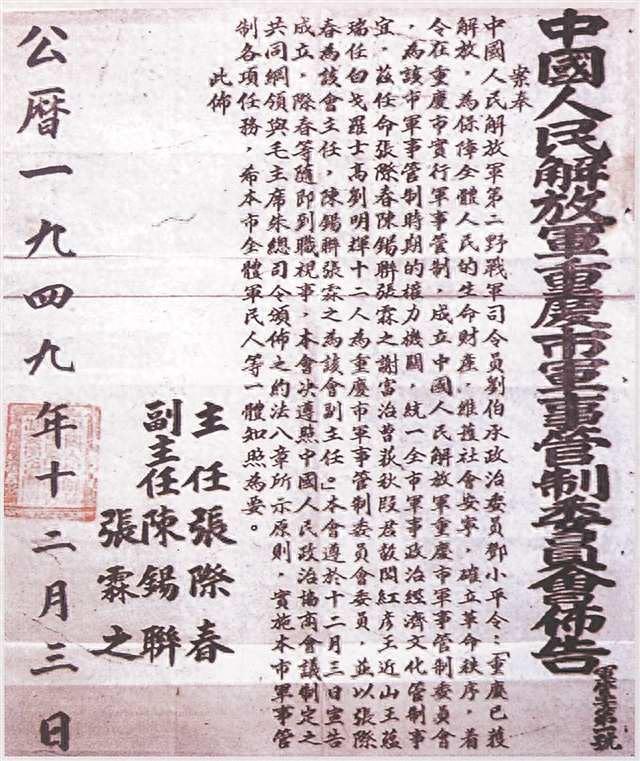 中國人民解放軍重慶市軍事管制委員會佈告
軍管字第一號
案奉
中國人民解放軍第二野戰軍司令員劉伯承政治委員鄧小平令：「重慶已獲
解放，為保障全體人民的生命財產，維護社會安寧，確立革命秩序，着
令在重慶市實行軍事管制，成立中國人民解放軍重慶市軍事管制委員會
，為該市軍事管制時期的權力機關，統一全市軍事政治經濟文化管制事
宜，茲任命張際春陳錫聯張霖之謝富治曹荻秋段君毅閻紅彥王近山王蘊
瑞任白戈羅士高劉明輝十二人為重慶市軍事管制委員會委員，並以張際
春為該會主任，陳錫聯張霖之為該會副主任。」本會遵於十二月三日宣告
成立，際春等隨即到職視事，本會決遵照中國人民政治協商會議制定之
共同綱領與毛主席朱總司令頒佈之約法八章所示原則，實施本市軍事管
制各項任務，希本市全體軍民人等一體知照為要。
此佈
主任張際春
副主任陳錫聯
張霖之
公曆一九四九年十二月三日